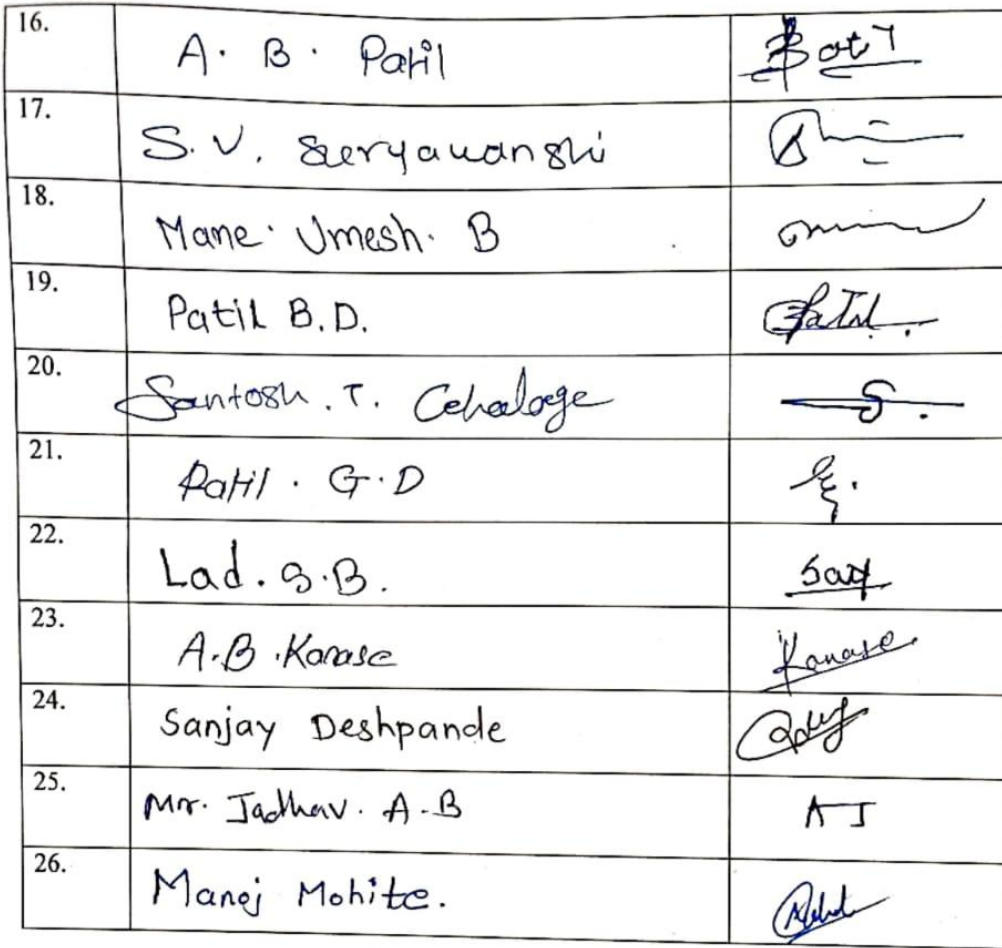 16. A. B. Patil
17. S. V. Suryawanshi
18. Mane. Umesh. B
19. Patil B.D. Patil.
20. Santosh. T. S.
21. Patil. G.D
22. Lad. S.B.
23. A.B. Kanase Kanase
24. Sanjay Deshpande
25. Mr. Jadhav. A.B AJ
26. Manoj Mohite.